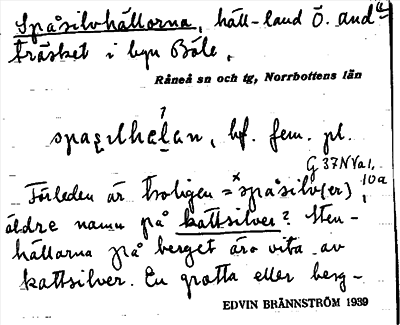 Spåsilvhällorna, häll-land Ö. And-
träsket i byn Böle.
Råneå sn och tg, Norrbottens län
bf. fem. pl.
G 37NVa1,
10a
Förleden är troligen = *spåsilv(er),
äldre namn på kattsilver? Sten-
hällarna på berget äro vita av
kattsilver. En grotta eller berg-
EDVIN BRÄNNSTRÖM 1939